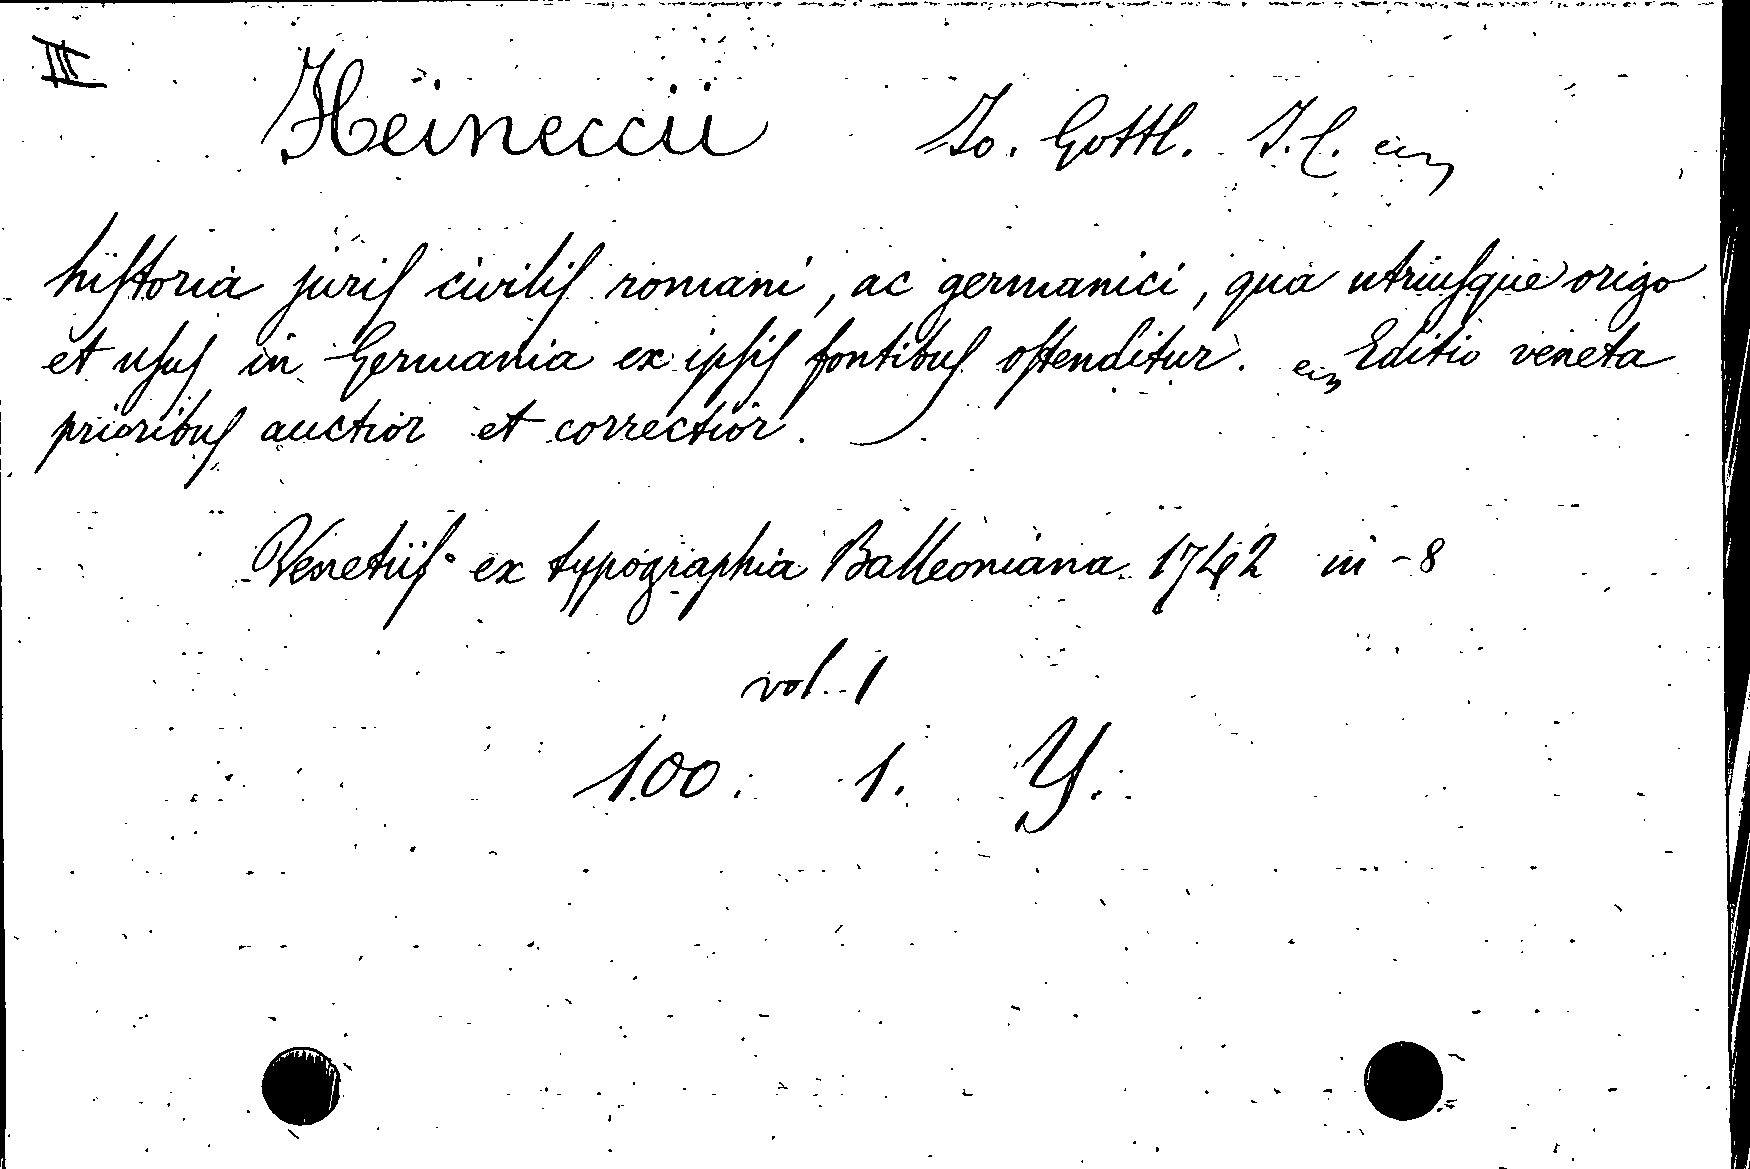 III
Heineccii Io. Gottl. I. C.
hiſtoria juriſ civiliſ romani, ac germanici, qua utriuſque origo
et uſuſ in Germania ex ipſiſ fontibuſ oſtenditur. Editio veneta
prioribuſ auctior et correctior.
Venetiiſ ex typographia Balleoniana 1742 in-8
vol. 1
100. 1. Y.